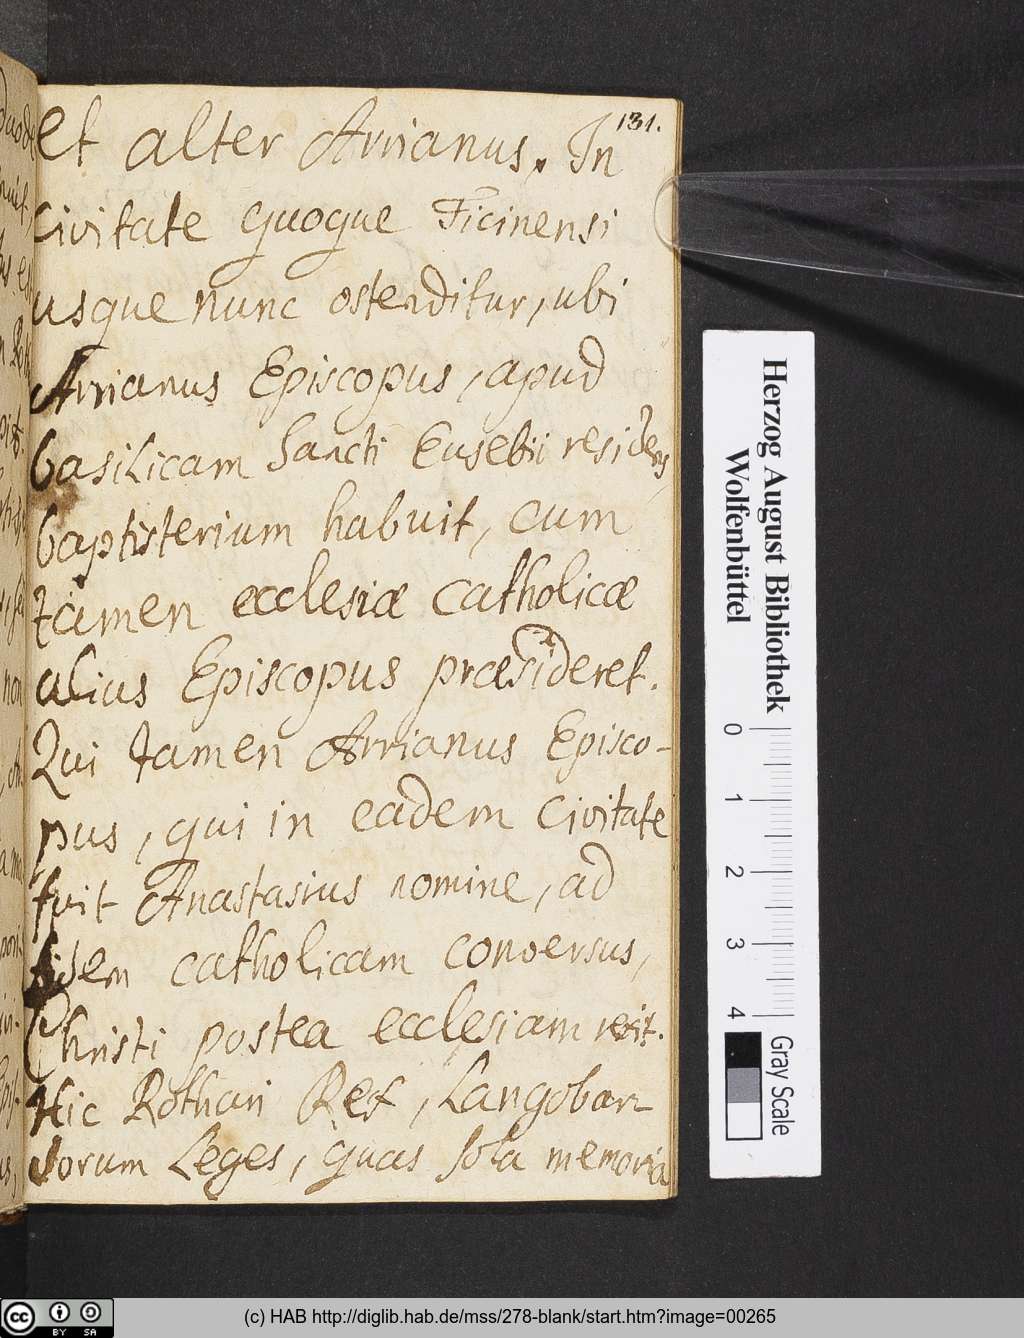 131.
et alter Arrianus. In
civitate quoque Ticinensi
usque nunc ostenditur, ubi
Arrianus Episcopus, apud
basilicam Sancti Eusebii residens,
baptisterium habuit, cum
tamen ecclesiæ catholicæ
alius Episcopus præsideret.
Qui tamen Arrianus Episco-
pus, qui in eadem civitate
fuit Anastasius nomine, ad
fidem catholicam conversus,
Christi postea ecclesiam rexit.
Hic Rothari Rex, Langobar-
dorum Leges, quas sola memoria
Herzog August Bibliothek
Wolfenbüttel
0 1 2 3 4
Gray Scale
(c) HAB http://diglib.hab.de/mss/278-blank/start.htm?image=00265
cc BY SA